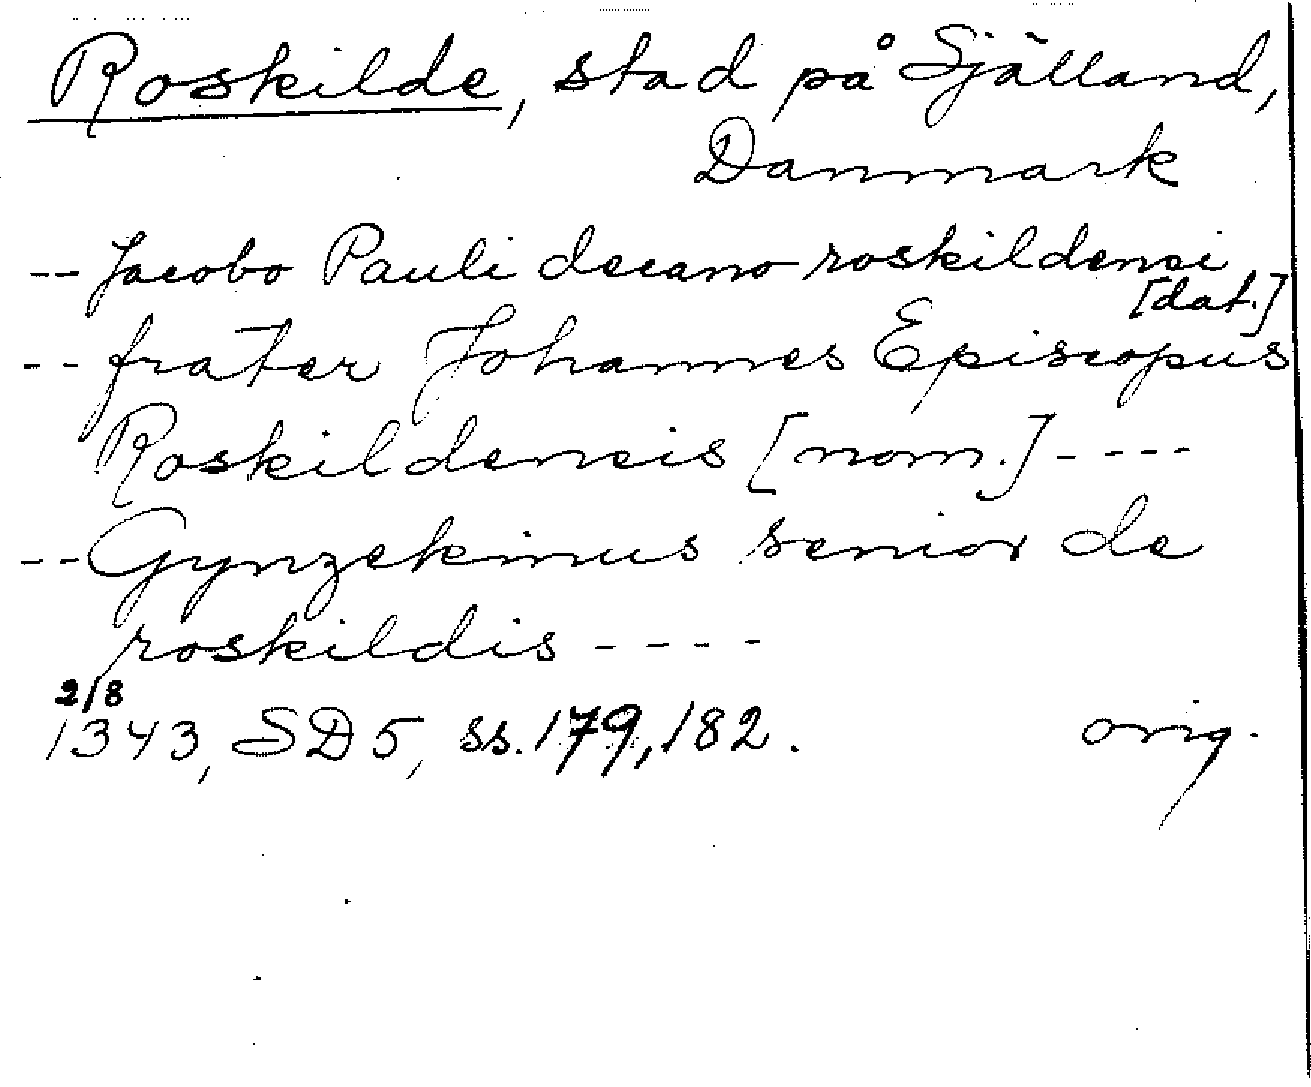 Roskilde, stad på Själland,
Danmark
-- Jacobo Pauli decano roskildensi
[dat.]
-- frater Johannes Episcopus
Roskildensis [nom.] ----
-- Gynzekinus senior de
roskildis ----
2/8
1343, SD 5, ss. 179, 182. orig.